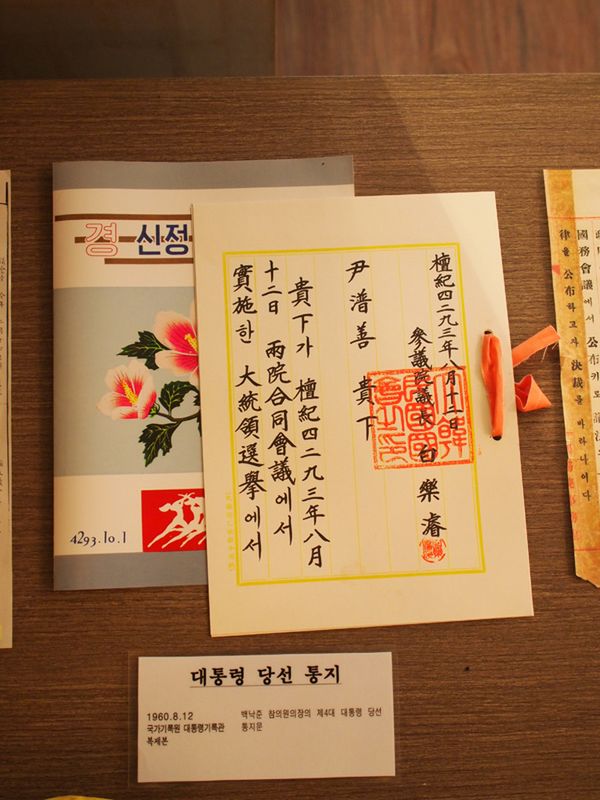 경 신정
4293.10.1
檀紀四二九三年八月十二日
參議院議長 白樂濬
尹潽善 貴下
貴下가 檀紀四二九三年八月
十二日 兩院合同會議에서
實施한 大統領選擧에서
國務會議에서 公布키로
律을 公布하고자 決議를 바라나이다
대통령 당선 통지
1960.8.12 백낙준 참의원의장의 제4대 대통령 당선
국가기록원 대통령기록관 통지문
복제본